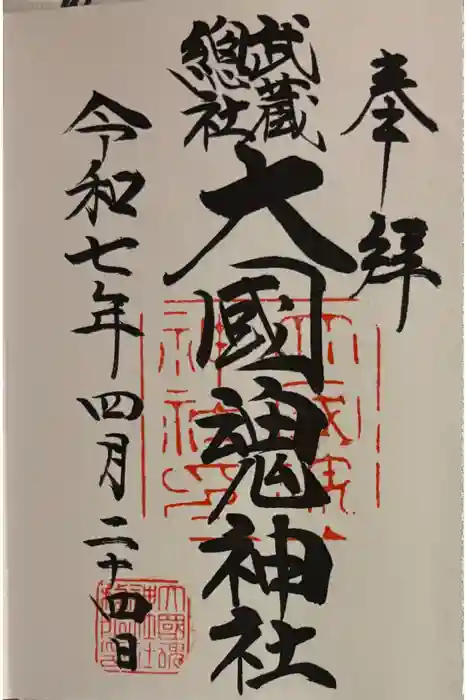 奉拝
武蔵
總社
大國魂神社
令和七年四月二十四日